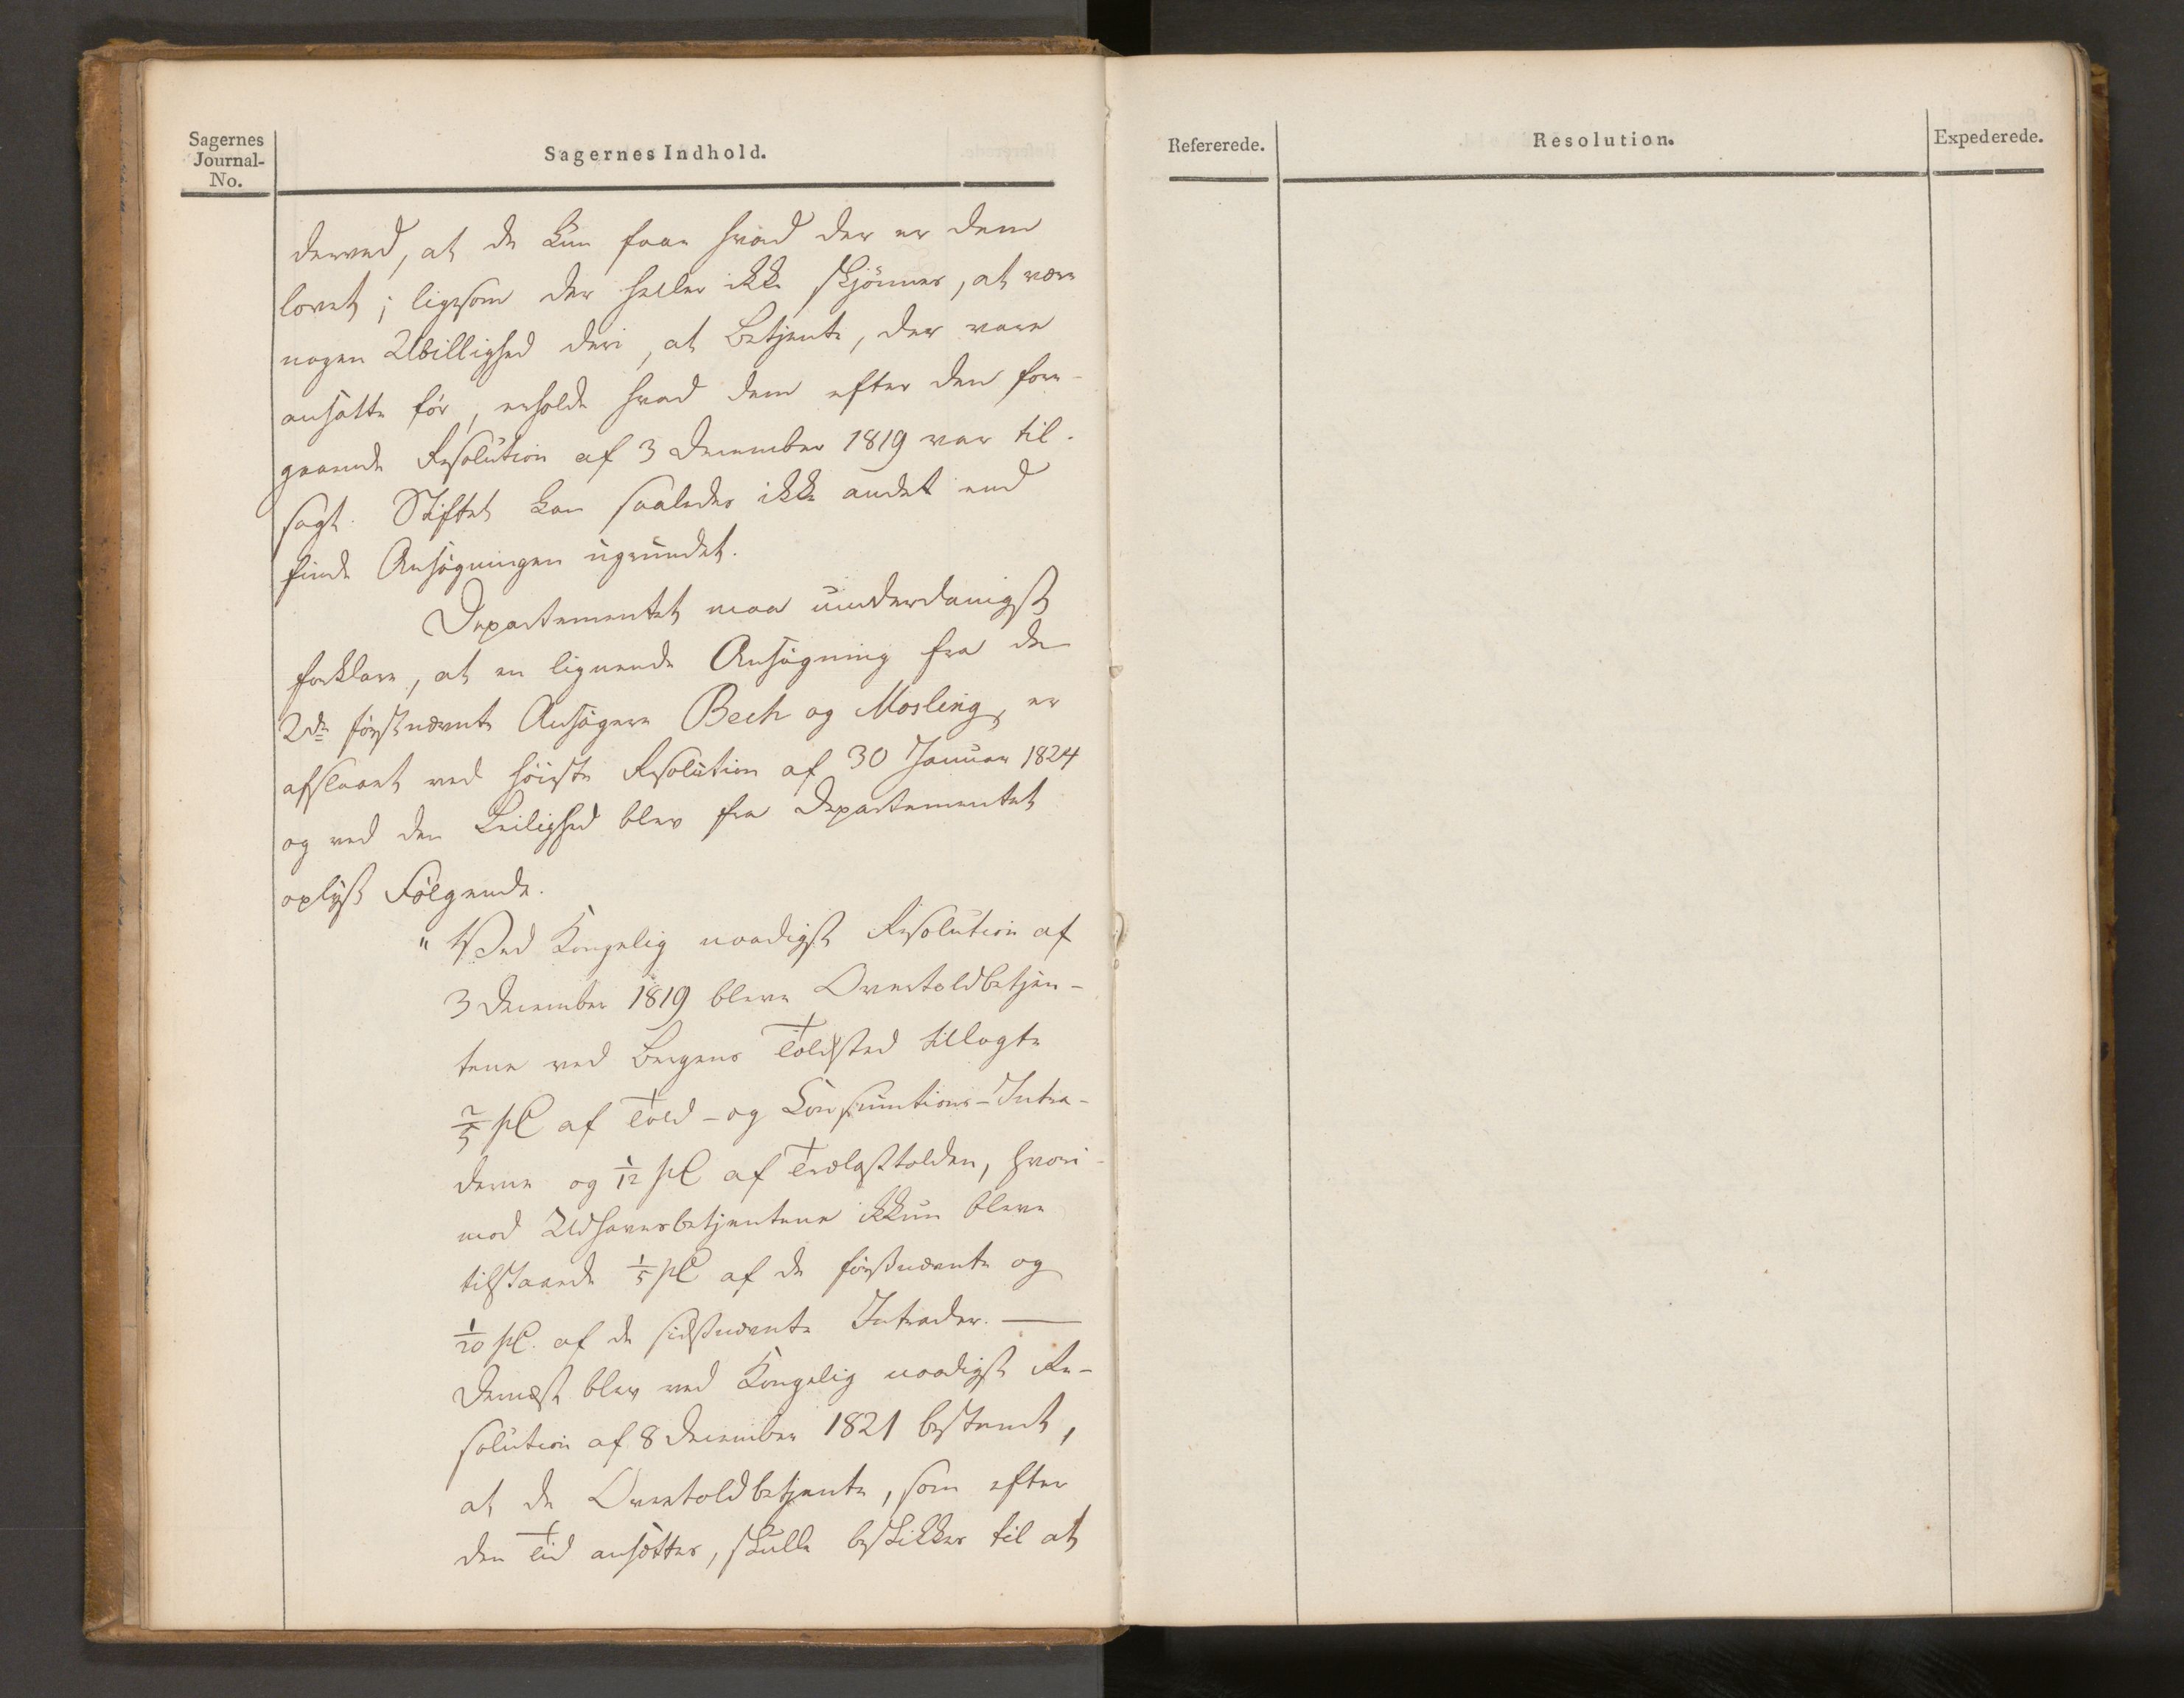 Sagernes
Journal-
No.
Sagernes Indhold.
derved, at de kun faae hvad der er dem
lovet; ligesom der heller ikke skjönnes, at være
nogen Ubillighed deri, at Betjente, der vare
ansatte för, erholde hvad dem efter den fore-
gaaende Resolution af 3 December 1819 var til-
sagt. Stiftet kan saaledes ikke andet end
finde Ansögningen ugrundet.
Departementet maa underdanigst
forklare, at en lignende Ansögning fra de
2de förstnævnte Ansögere Bech og Mosling, er
afslaaet ved höieste Resolution af 30 Januar 1824
og ved den Leilighed blev fra Departementet
oplyst Fölgende.
" Ved Kongelig naadigst Resolution af
3 December 1819 bleve Overtoldbetjen-
tene ved Bergens Toldsted tillagte
2/5 pC af Told- og Consumtions-Intra-
derne og 1/12 pC af Trælasttolden, hvori-
mod Udhavnsbetjentene ikkun bleve
tilstaaede 1/5 pC af de förstnævnte og
1/20 pC. af de sidstnævnte Intrader. —
Dernæst blev ved Kongelig naadigst Re-
solution af 8 December 1821 bestemt,
at de Overtoldbetjente, som efter
den Tid ansættes, skulle beskikkes til at
Refererede.
Resolution.
Expederede.